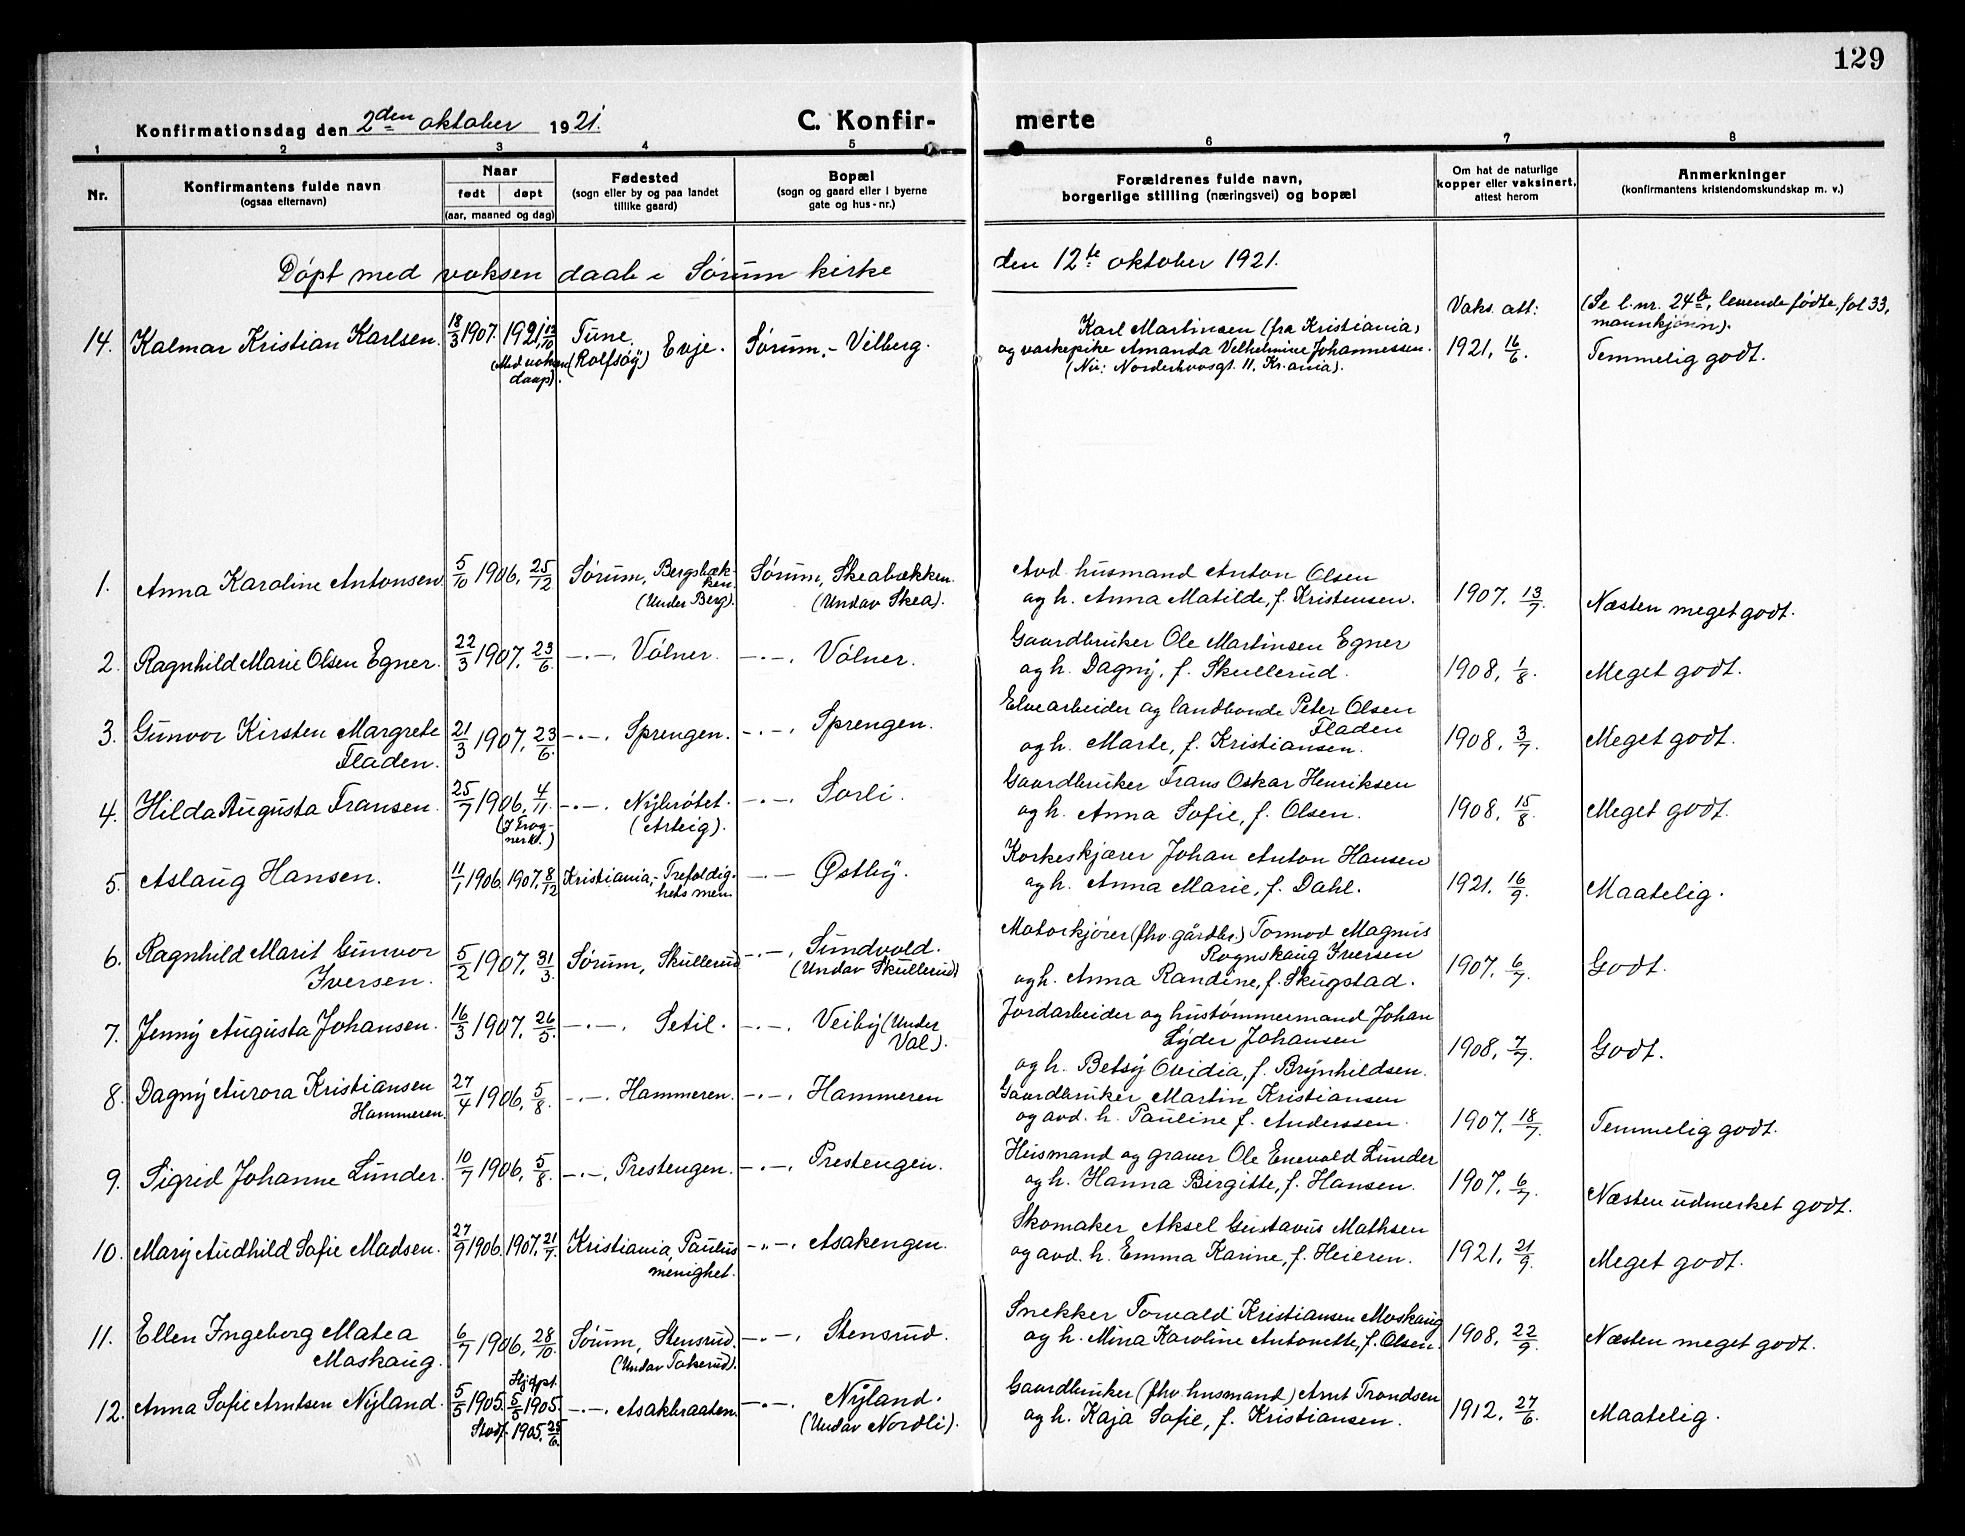 129
Konfirmationsdag den 2den oktober 1921.
C. Konfirmerte
1 2 3 4 5 6 7 8
Nr.
Konfirmantens fulde navn
(ogsaa efternavn)
Naar
født døpt
(aar, maaned og dag)
Fødested
(sogn eller by og paa landet
tillike gaard)
Bopæl
(sogn og gaard eller i byerne
gate og hus-nr.)
Forældrenes fulde navn,
borgerlige stilling (næringsvei) og bopæl
Om hat de naturlige
kopper eller vaksinert,
attest herom
Anmerkninger
(konfirmantens kristendomskundskap m. v.)
Døpt med voksen daab i Sørum kirke den 12te oktober 1921.
14. Kalmar Kristian Karlsen. 18/3 1907. 1921, 12/10 (Med voksen daap). Tune, (Rolfsøy) Evje. Sørum, - Vilberg.
Karl Martinsen (fra Kristiania,
og vaskepike Amanda Vilhelmine Johannessen.
(Nu: Norderhovsgt. 11, Kr.ania).
Vaks. att:
1921, 16/6.
(Se l.nr. 24b, levende fødte, fol 33,
mannkjønn).
Temmelig godt.
1. Anna Karoline Antonsen. 5/10 1906, 25/12 Sørum, Bergsbækken (Under Berg). Sørum, Skeabækken. (Undav Skea).
Avd. husmand Anton Olsen
og h. Anna Matilde, f. Kristensen.
1907, 13/7. Næsten meget godt.
2. Ragnhild Marie Olsen Egner. 22/3 1907, 23/6. -.-. Vølner. -.-. Vølner.
Gaardbruker Ole Martinsen Egner
og h. Dagny, f. Skullerud.
1908, 1/8. Meget godt.
3. Gunvor Kirsten Margrete
Fladen. 21/3 1907, 23/6. -.-. Sprengen. -.-. Sprengen.
Elvearbeider og landbonde Peter Olsen
Fladen
og h. Marte, f. Kristiansen.
1908, 3/7. Meget godt.
4. Hilda Augusta Fransen. 25/7 1906, 4/11. (I Frognerk.) -.-. Nybrøtet. (Arteig). -.-. Sorli.
Gaardbruker Frans Oskar Henriksen
og h. Anna Sofie, f. Olsen.
1908, 15/8. Meget godt.
5. Aslaug Hansen. 11/1 1906. 1907, 8/12 Kristiania, - Trefoldighets men. -.- Østby.
Korkeskjærer Johan Anton Hansen
og h. Anna Marie, f. Dahl.
1921, 16/9. Maatelig.
6. Ragnhild Marit Gunvor
Iversen. 5/2 1907, 31/3. Sørum, Skullerud -.-. Sundvold. (Undav Skullerud)
Motorkjører (fhv. gårdbr.) Tormod Magnus
Rognskaug Iversen
og h. Anna Randine, f. Skugstad.
1907, 6/7. Godt.
7. Jenny Augusta Johansen. 16/3 1907, 26/5. -.-. Setil. -.-. Veiby (Under Val).
Jordarbeider og hustømmermand Johan
Lyder Johansen
og h. Betsy Ovidia, f. Brynhildsen.
1908, 7/7. Godt.
8. Dagny Aurora Kristiansen
Hammeren. 27/4 1906, 5/8. -.-. Hammeren. -.-. Hammeren
Gaardbruker Martin Kristiansen
og avd. h. Pauline f. Anderssen.
1907, 18/7. Temmelig godt.
9. Sigrid Johanne Lunder. 10/7 1906, 5/8. -.-. Prestengen. -.-. Prestengen.
Husmand og graver Ole Enevald Lunder
og h. Hanna Birgitte, f. Hansen.
1907, 6/7. Næsten udmerket godt.
10. Mary Audhild Sofie Madsen. 27/9 1906. 1907, 21/7. Kristiania, Paulus menighet. -.-. Asakengen.
Skomaker Aksel Gustavus Mathsen
og avd. h. Emma Karine, f. Heieren.
1921, 21/9. Meget godt.
11. Ellen Ingeborg Matea
Moskaug. 6/7 1906, 28/10. Sørum, Stensrud. (Undav Takerud). -.-. Stensrud.
Snekker Torvald Kristiansen Moskaug
og h. Mina Karoline Antonette, f. Olsen.
1908, 22/9. Næsten meget godt.
12. Anna Sofie Arntsen Nyland. 5/5 1905. Hjdpt. 5/5 1905 Stadf. 1905, 25/6. -.-. Asakbraaten. -.-. Nyland. (Undav Nordli).
Gaardbruker (fhv. husmand) Arnt Trondsen
og h. Kaja Sofie, f. Kristiansen.
1912, 27/6. Maatelig.